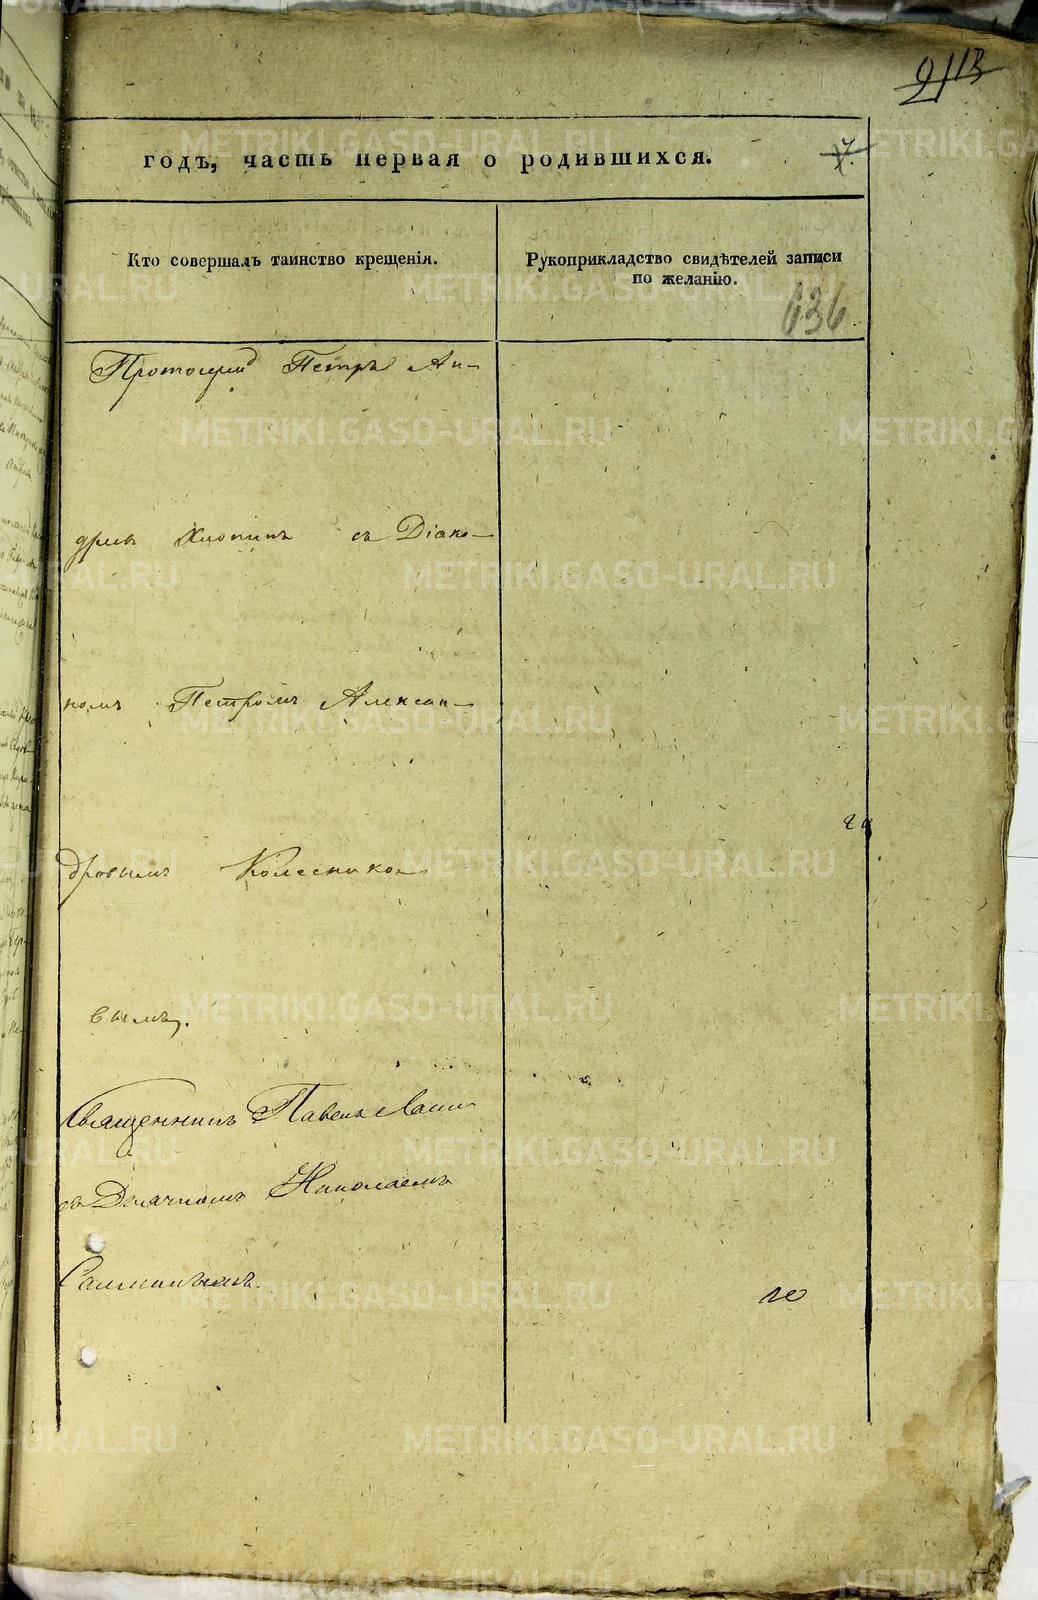 113
годъ, часть первая о родившихся.
7.
Кто совершалъ таинство крещенія.
Рукоприкладство свидѣтелей записи
по желанію.
636
Протоіерей Петръ Ан-
дреевъ Хлопинъ съ Діако-
номъ Петромъ Алексан-
дровымъ Колеснико-
вымъ.
Священникъ Павелъ
съ Дьячкомъ Николаемъ
10
METRIKI.GASO-URAL.RU